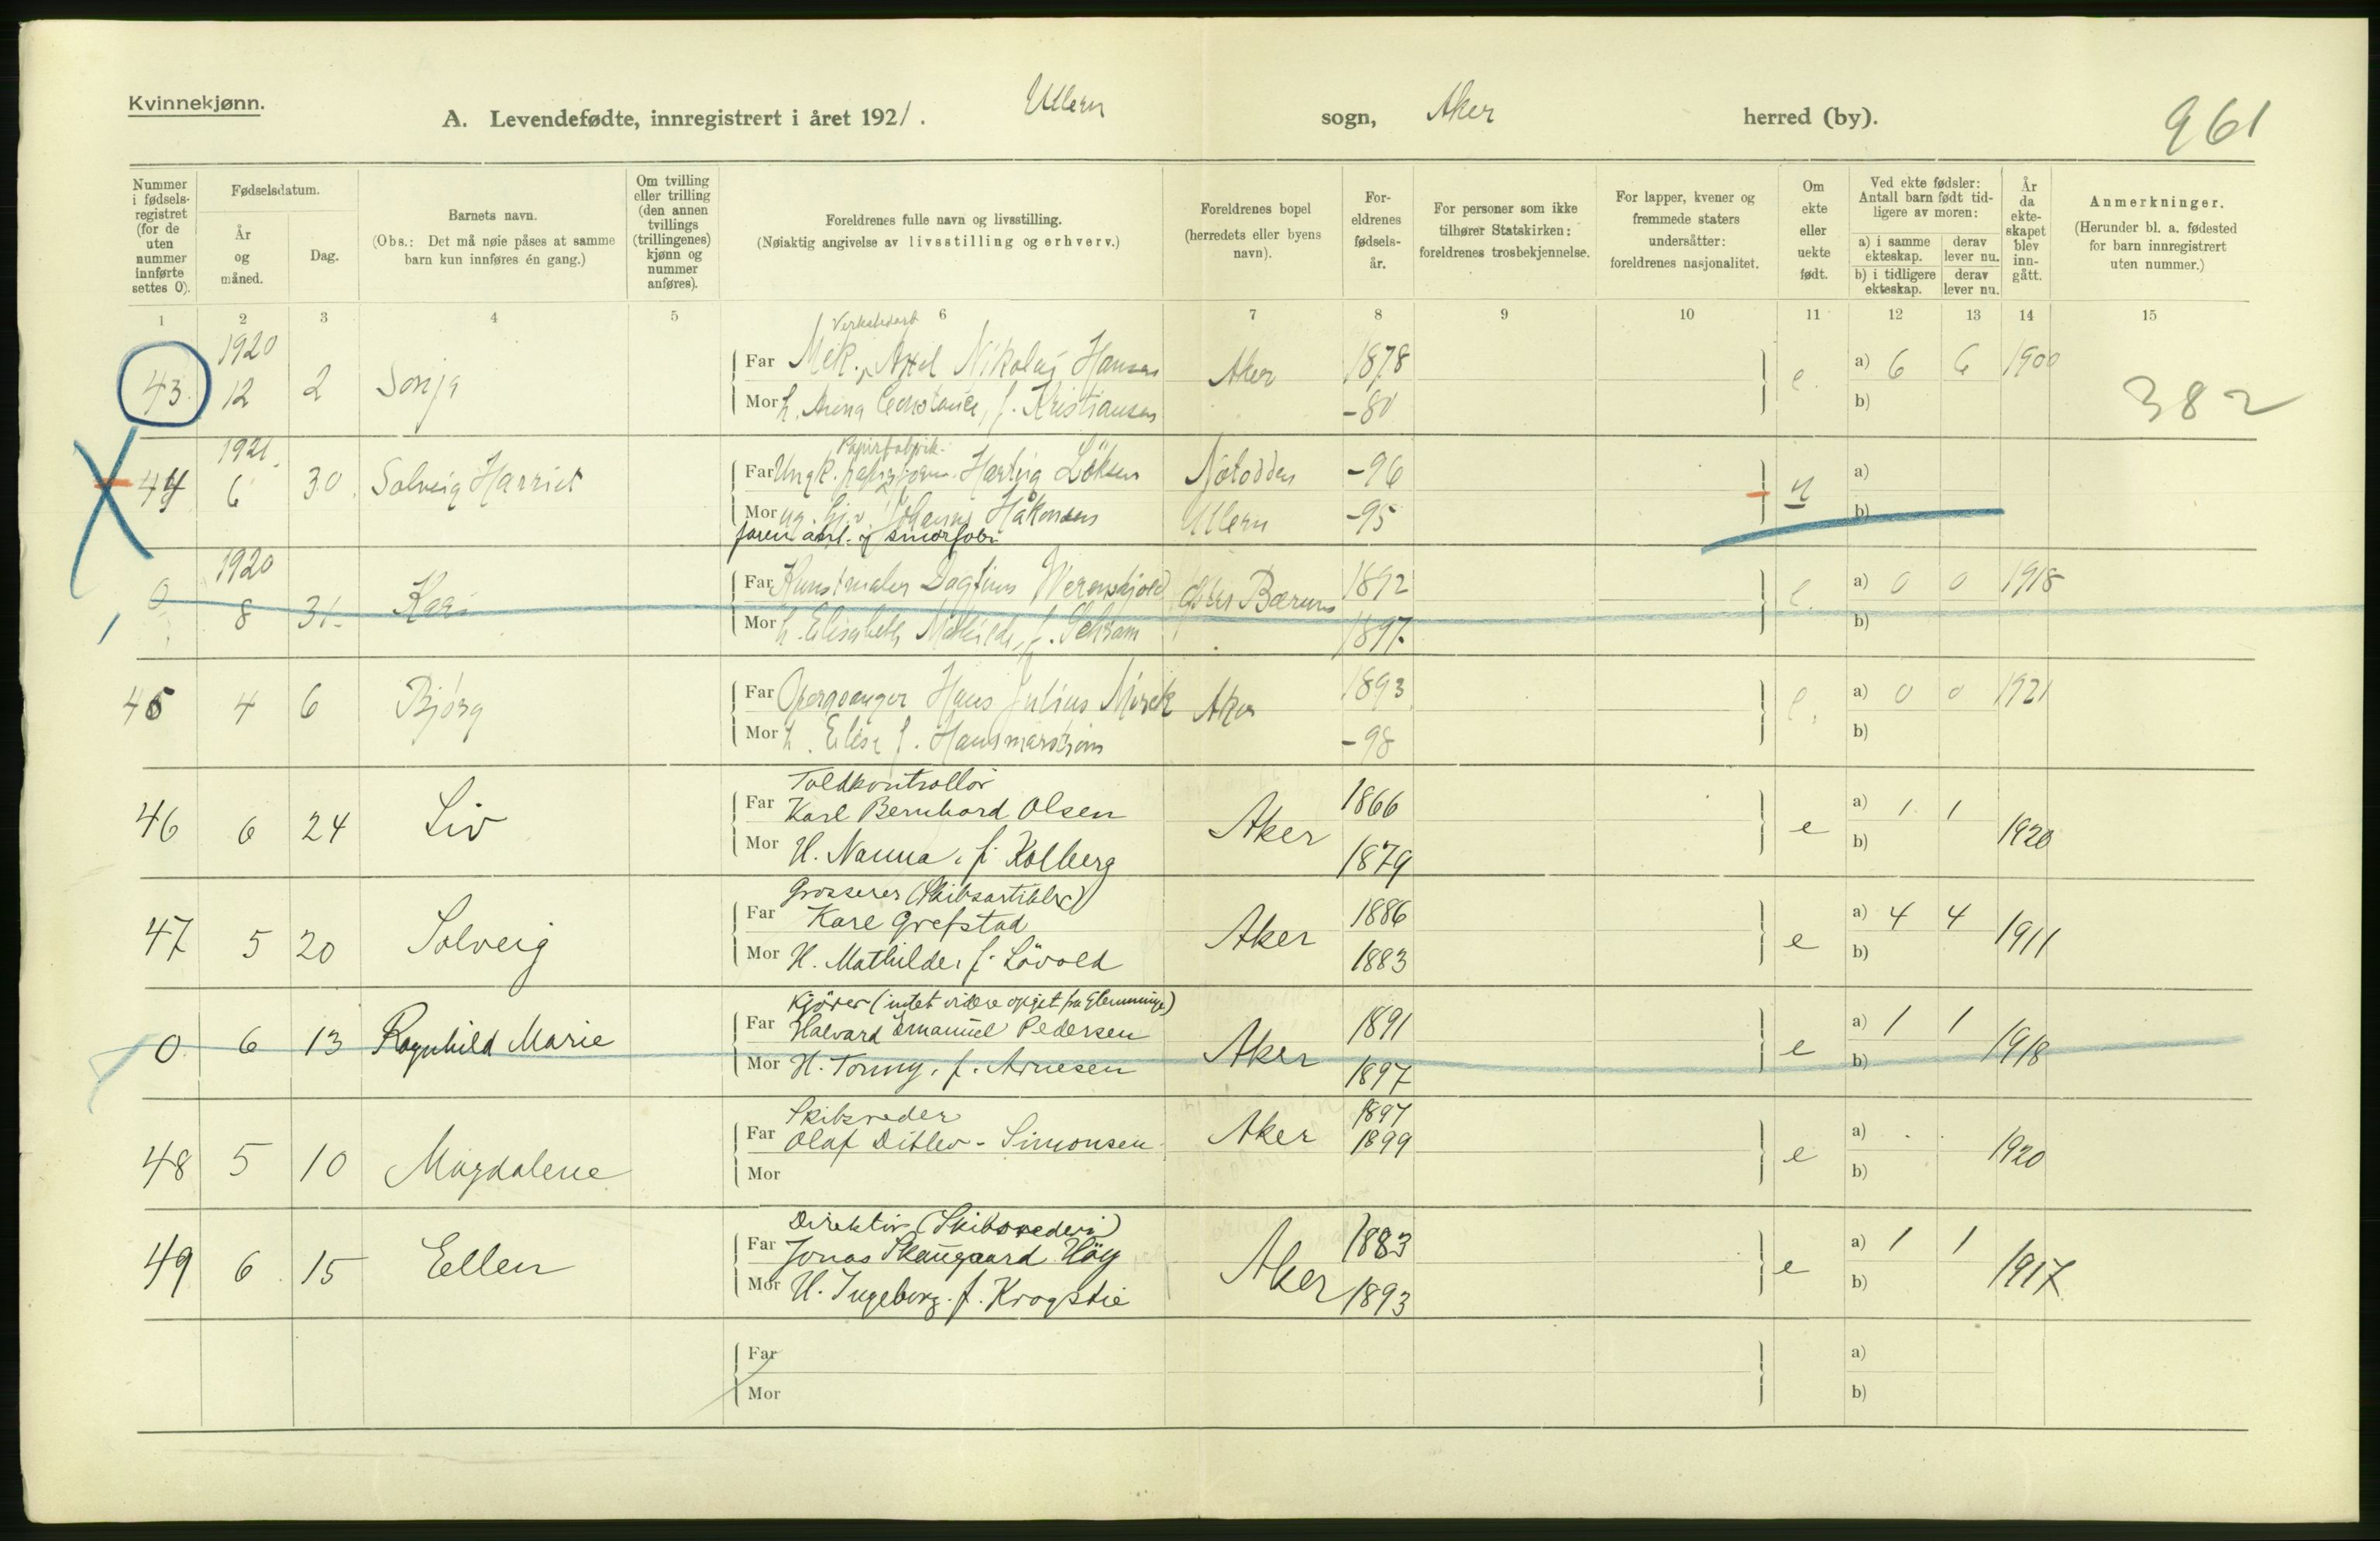 Kvinnekjønn.
A. Levendefødte, innregistrert i året 1921. Ullern sogn, Aker herred (by).
961
Nummer i fødsels-registret (for de uten nummer innførte settes 0).
Fødselsdatum.
År og måned.
Dag.
Barnets navn.
(Obs.: Det må nøie påses at samme barn kun innføres én gang.)
Om tvilling eller trilling (den annen tvillings (trillingenes) kjønn og nummer anføres).
Foreldrenes fulle navn og livsstilling.
(Nøiaktig angivelse av livsstilling og erhverv.)
Foreldrenes bopel (herredets eller byens navn).
For-eldrenes fødsels-år.
For personer som ikke tilhører Statskirken: foreldrenes trosbekjennelse.
For lapper, kvener og fremmede staters undersåtter: foreldrenes nasjonalitet.
Om ekte eller uekte født.
Ved ekte fødsler: Antall barn født tid-ligere av moren:
a) i samme ekteskap. derav lever nu.
b) i tidligere ekteskap. derav lever nu.
År da ekte-skapet blev inn-gått.
Anmerkninger.
(Herunder bl. a. fødested for barn innregistrert uten nummer.)
1 2 3 4 5 6 7 8 9 10 11 12 13 14 15
1920
43. 12 2 Sonja
Far Mek. Axel Nikolai Hansen Aker 1878 e. a) 6 6 1900
Mor h. Anna Constance, f. Kristiansen -80 b)
382
1921.
44 6 30. Solveig Harriet
Papirfabrik.
Far Ungk. Hartvig Löken Notodden -96 u a)
Mor Johanne Håkonsen Ullern -95 b)
1920
0 8 31. Kari
Far Kunstmaler Dagfinn Werenskjold Bærum 1892 e. a) 0 0 1918
Mor h. Elisabeth Mathilde, f. Schram 1897. b)
45 4 6 Bjórg
Far Operasanger Hans Julius Aker 1893 e. a) 0 0 1921
Mor h. Elise f. -98 b)
Toldkontrollör
46 6 24 Liv
Far Karl Bernhard Olsen Aker 1866 e a) 1 1 1920
Mor H. Nanna, f. Kolberg 1879 b)
Grosserer (Skibsartikler)
47 5 20 Solveig
Far Kare Grefstad Aker 1886 e a) 4 4 1911
Mor H. Mathilde, f. Lövold 1883 b)
Kjörer (intet videre opgit fra Glemminge)
0 6 13 Ragnhild Marie
Far Halvard Emanuel Pedersen Aker 1891 e a) 1 1 1918
Mor H. Tonny, f. Arnesen 1897 b)
Skibsreder
48 5 10 Magdalene
Far Olaf Ditlev-Simonsen Aker 1897 1899 e a) . . 1920
Mor b)
Direktör (Skibsrederi)
49 6 15 Ellen
Far Jonas Skaugaard Höy Aker 1883 e a) 1 1 1917
Mor H. Ingeborg f. Krogstie 1893 b)
Far a)
Mor b)